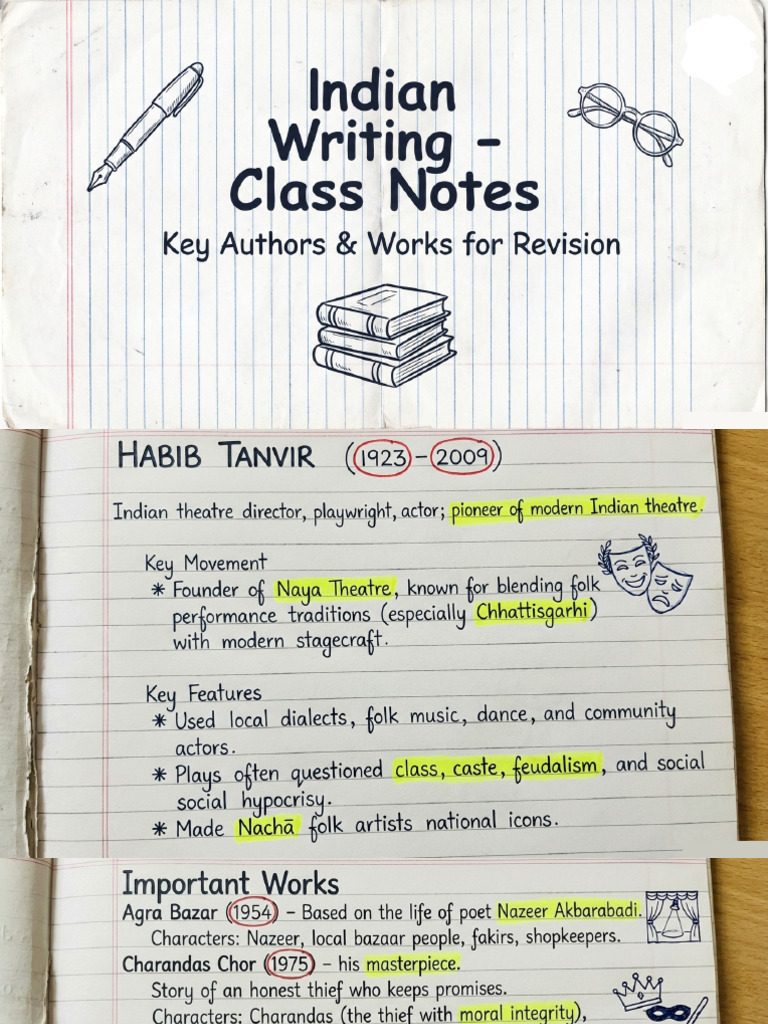 Indian
Writing –
Class Notes
Key Authors & Works for Revision
HABIB TANVIR (1923 – 2009)
Indian theatre director, playwright, actor; pioneer of modern Indian theatre.
Key Movement
* Founder of Naya Theatre, known for blending folk
performance traditions (especially Chhattisgarhi)
with modern stagecraft.
Key Features
* Used local dialects, folk music, dance, and community
actors.
* Plays often questioned class, caste, feudalism, and social
social hypocrisy.
* Made Nachā folk artists national icons.
Important Works
Agra Bazar (1954) – Based on the life of poet Nazeer Akbarabadi.
Characters: Nazeer, local bazaar people, fakirs, shopkeepers.
Charandas Chor (1975) – his masterpiece.
Story of an honest thief who keeps promises.
Characters: Charandas (the thief with moral integrity),